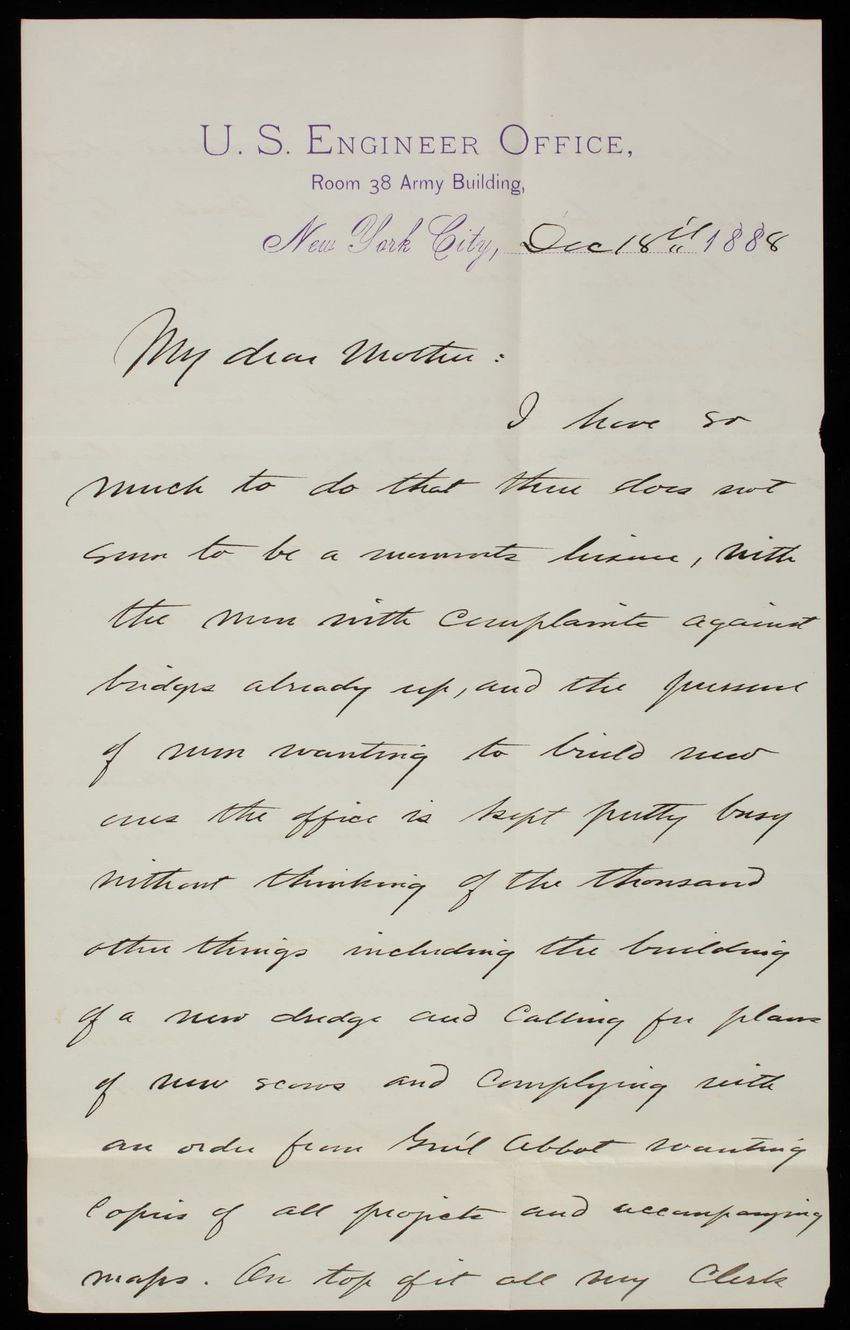 U. S. ENGINEER OFFICE,
Room 38 Army Building,
New York City, Dec 18th 1888
My dear Mother:
I have so
much to do that there does not
seem to be a moments leisure, with
the men with complaints against
bridges already up, and the pressure
of men wanting to build new
ones the office is kept pretty busy
without thinking of the thousand
other things including the building
of a new dredge and calling for plans
of new scows and complying with
an order from Gen'l Abbot wanting
copies of all projects and accompanying
maps. On top of it all my Clerk